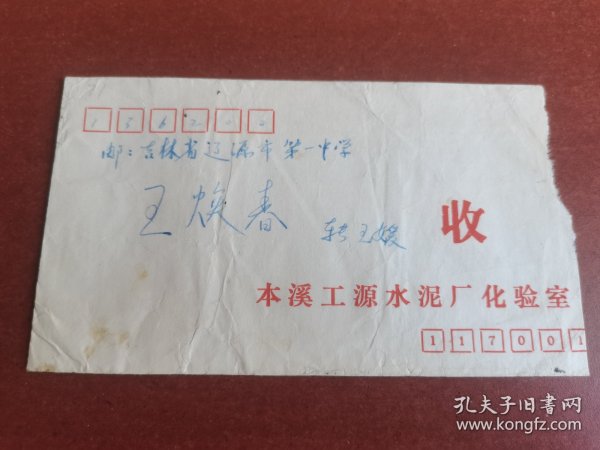 136200
邮：吉林省辽源市第一中学
王焕春 转王媛 收
本溪工源水泥厂化验室
117001
孔夫子旧书网
www.kongfz.com